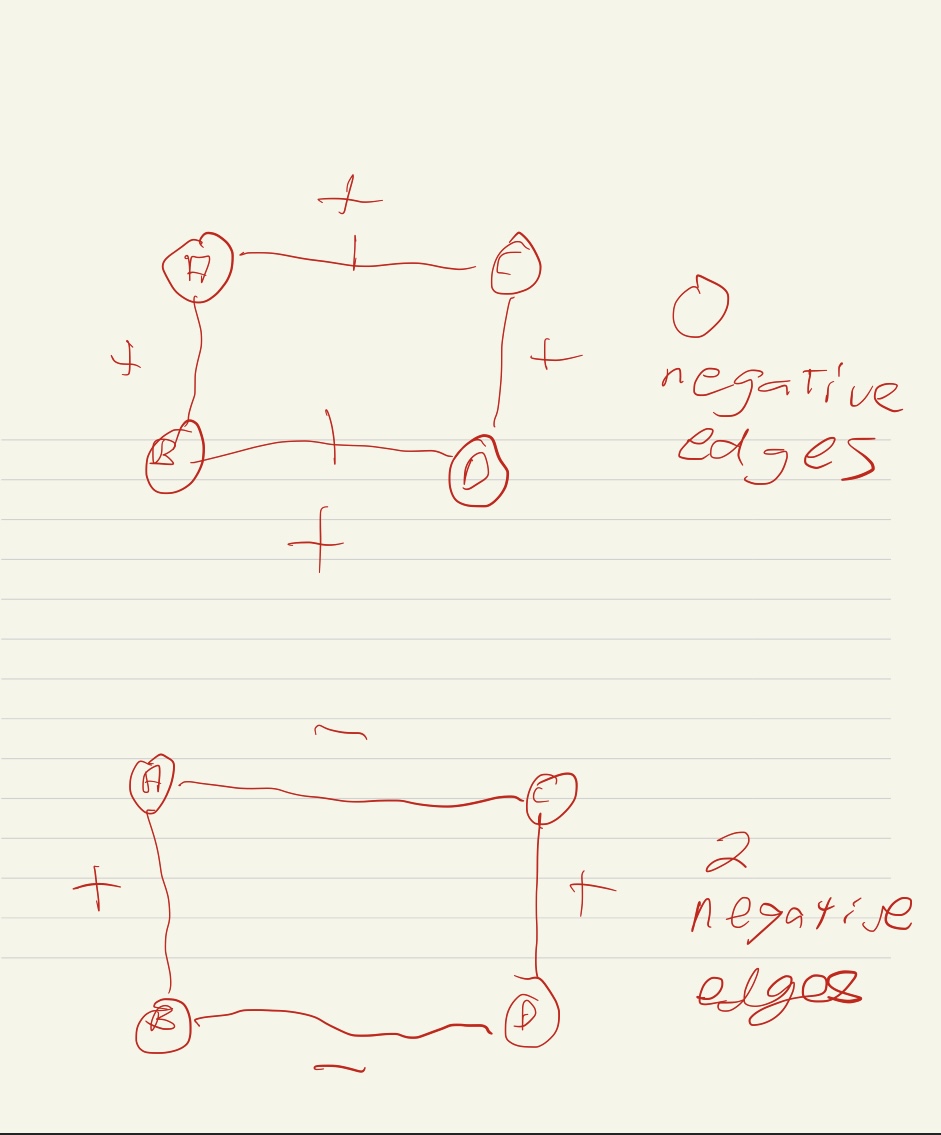 +
A C
+ +
B D
+
0
negative
edges
-
A C
+ +
B D
-
2
negative
edges